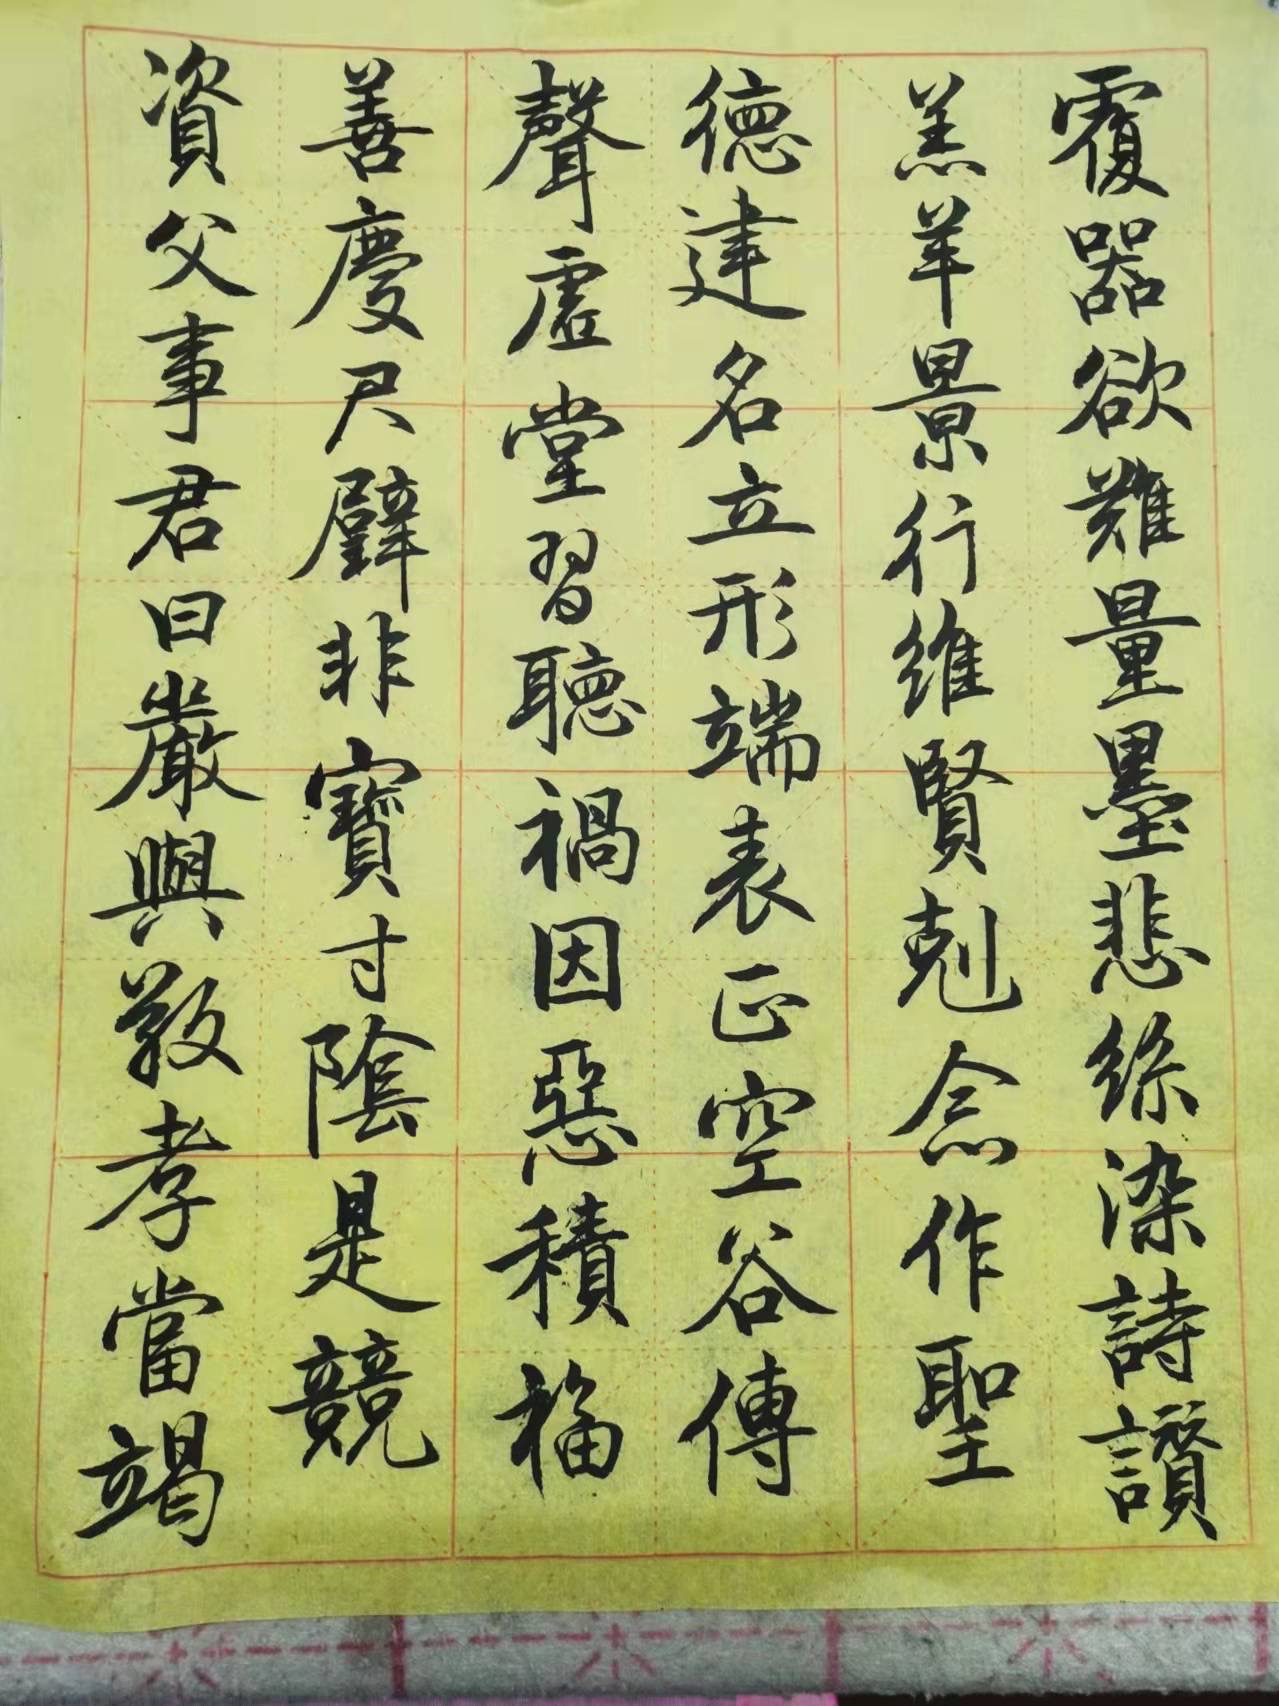 覆器欲難量墨悲絲染詩讃
羔羊景行維賢剋念作聖
德建名立形端表正空谷傳
聲虛堂習聽禍因惡積福
善慶尺璧非寶寸陰是競
資父事君曰嚴與敬孝當竭